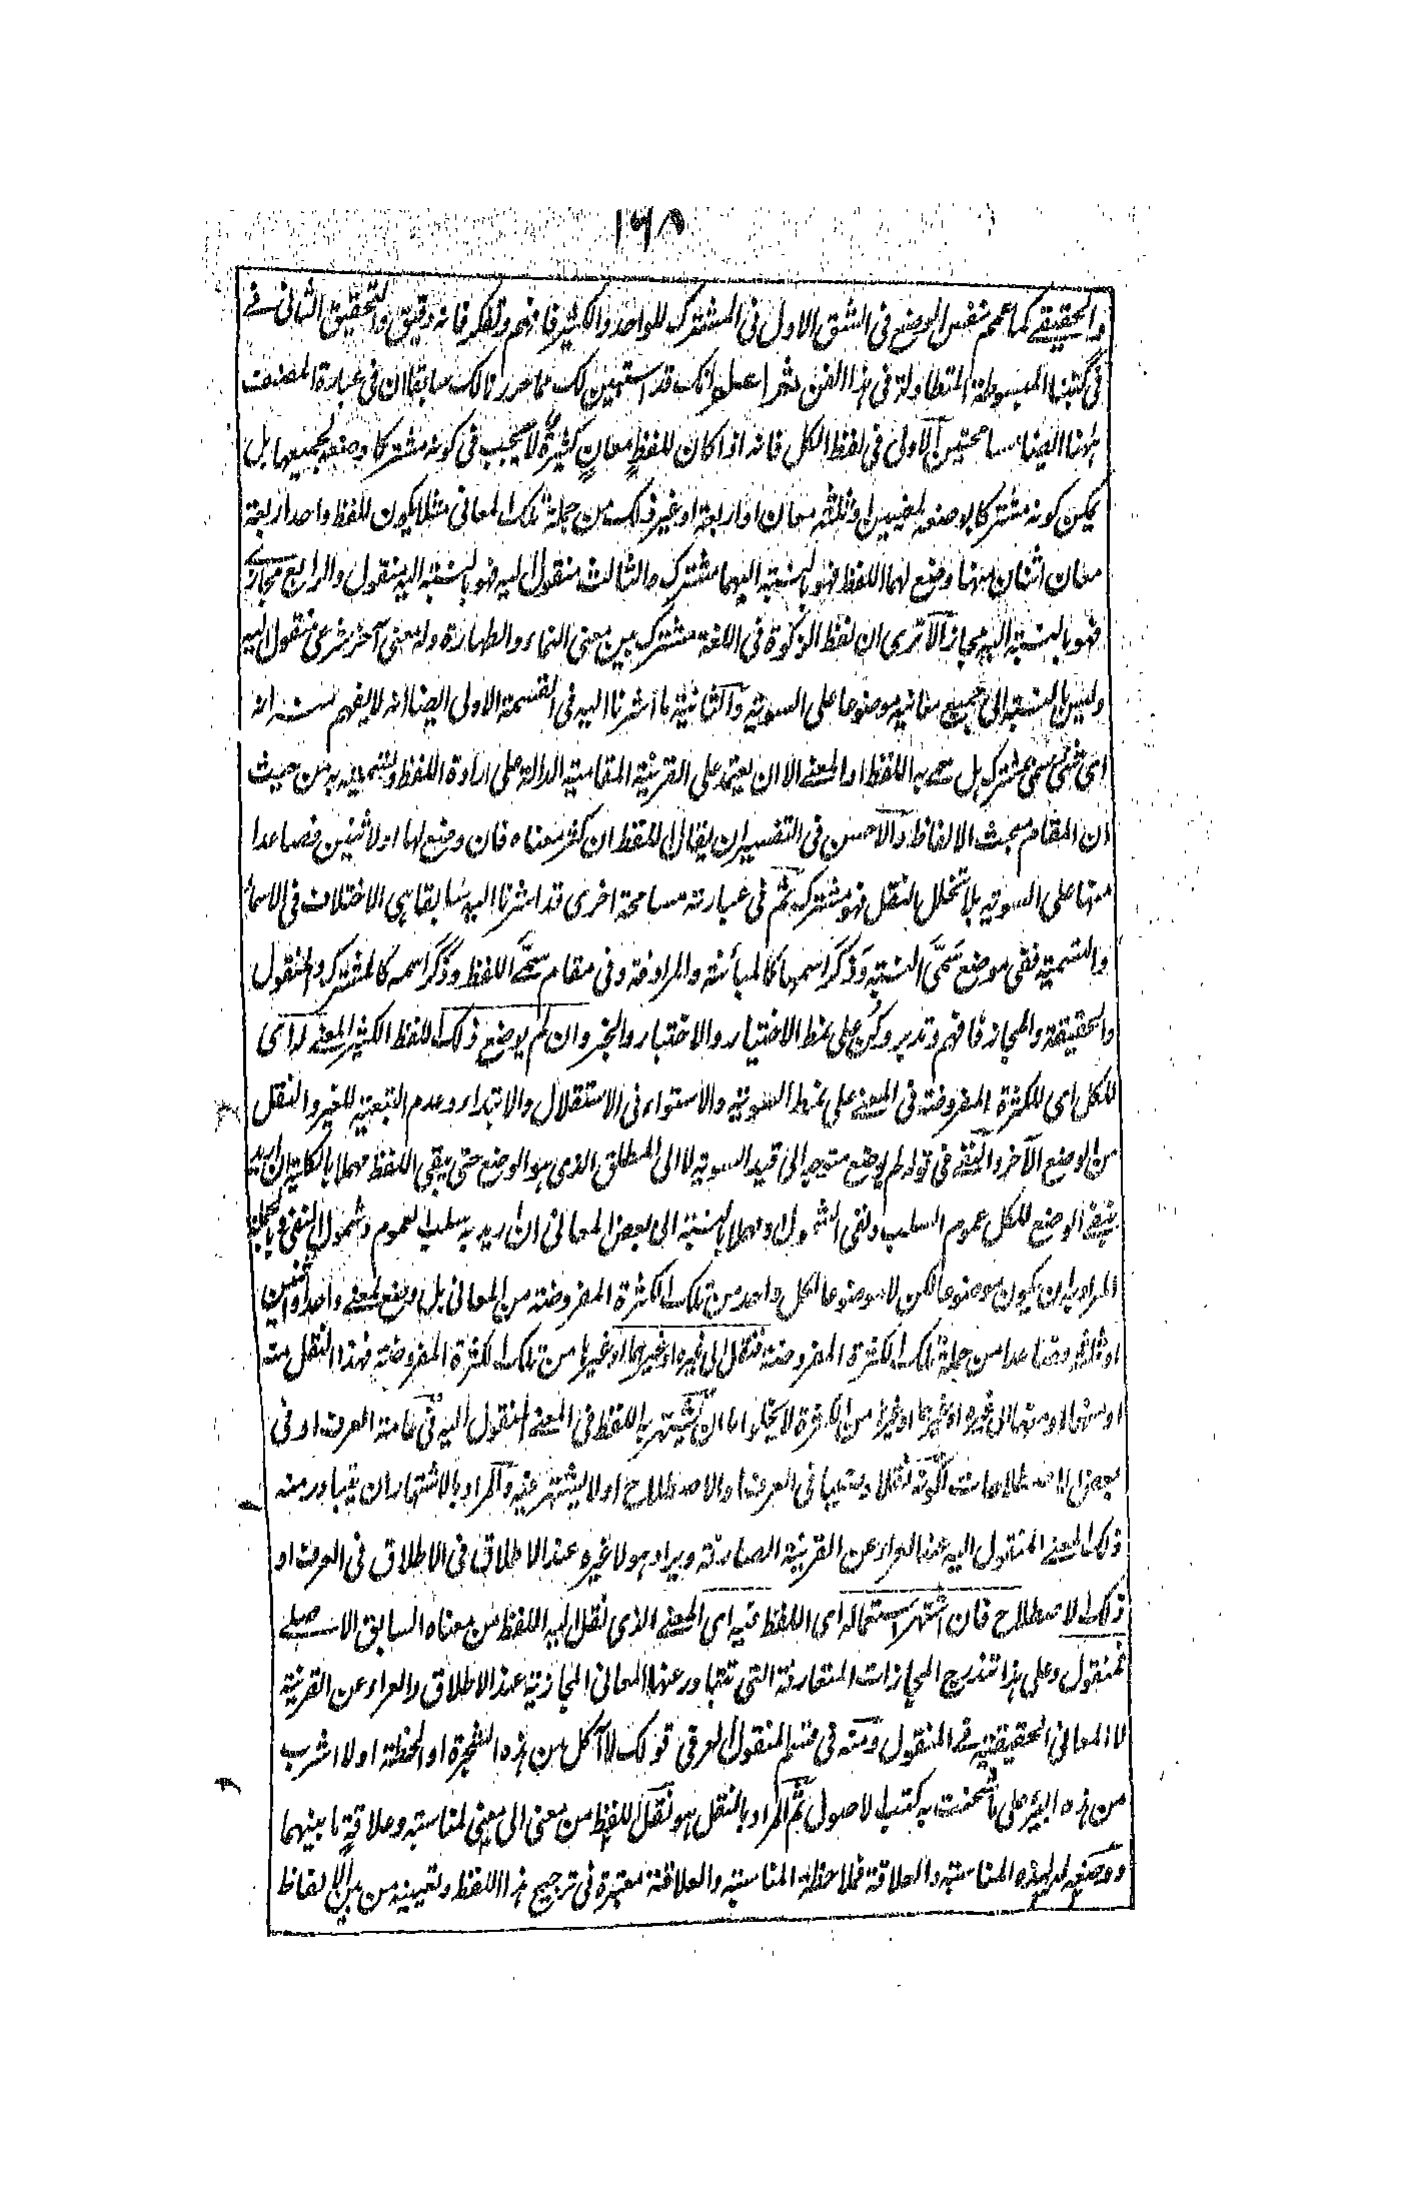 ١٦٨
والحقيقي كما عمم نفس الوضع فى الشق الاول فى المشترك للواحد والكثير فافهم وتفكر فانه دقيق والتحقيق الثانى فے
فى كتبنا المبسوطة المتطاولة فى هذا الفن ثم اعلم انك قد استبين لك مما حررنا لك سابقا ان فى عبارة المصنف
ههنا ايضا مسامحتين الاولى فى لفظ الكل فانه اذا كان للفظ معان كثيرة لا يجب فى كونه مشتركا وضعه لجميعها بل
يمكن كونه مشتركا بوضعه لمعنيين او ثلثة معان او اربعة او غير ذلك من جملة تلك المعانى مثلا يكون للفظ واحد اربعة
معان اثنان منها وضع لهما اللفظ فهو بالنسبة اليهما مشترك والثالث منقول اليه فهو بالنسبة اليه منقول والرابع مجازى
فهو بالنسبة اليه مجاز الا ترى ان لفظ الزكوة فى اللغة مشترك بين معنى النماء والطهارة وله معنى آخر شرعى منقول اليه
وليس بالنسبة الى جميع معانيه موضوعا على السوية والثانية ما اشرنا اليه فى القسمة الاولى ايضا انه لا يفهم منه انه
اى شئ سمى بمشترك هل سمى به اللفظ او المعنى الا ان يعتمد على القرينة المقامية الدالة على ارادة اللفظ وتسميته به من حيث
ان المقام مبحث الالفاظ والاحسن فى التفسير ان يقال اللفظ ان كثر معناه فان وضع لها او لاثنين فصاعدا
منها على السوية بلا تخلل النقل فهو مشترك ثم فى عبارته مسامحة اخرى قد اشرنا اليه سابقا هى الاختلاف فى الاسماء
والتسمية ففى موضع سمى النسبة وذكر اسمها كالمبائنة والمرادفة وفى مقام سمى اللفظ وذكر اسمه كالمشترك والمنقول
والحقيقة والمجاز فافهم وتدبر وكن على نمط الاختيار والاختبار والخبر وان لم يوضع ذلك اللفظ الكثير المعنى له اى
للكل اى للكثرة المفروضة فى المعنى على نمط السوية والاستواء فى الاستقلال والابتداء وعدم التبعية للغير والنقل
من الوضع الآخر والنفى فى قوله لم يوضع متوجه الى قيد السوية لا الى المطلق الذى هو الوضع حتى يبقى اللفظ مهملا بالكلية ان اريد
بنفى الوضع للكل عموم السلب ونفى الشمول او مهملا بالنسبة الى بعض المعانى ان اريد به سلب العموم وشمول النفى وبالجملة
المراد به ان يكون موضوعا لكن لا موضوعا لكل واحد من تلك الكثرة المفروضة من المعانى بل وضع لمعنى واحد او اثنين
او ثلثة فصاعدا من جملة تلك الكثرة المفروضة فنقل الى غيره او غيرهما او غيرها من تلك الكثرة المفروضة فهذا النقل منه
او منهما او منها الى غيره او غيرهما او غيرها من الكثرة لا يخلو اما ان يشتهر به اللفظ فى المعنى المنقول اليه فى عامة العرف او فى
بعض الاصطلاحات لكونه نقلا دينيا فى العرف او الاصطلاح او لا يشتهر فيه والمراد بالاشتهار ان يتبادر منه
ذلك المعنى المنقول اليه عند العراء عن القرينة الصارفة ويراد هو لا غيره عند الاطلاق فى الاطلاق فى العرف او
ذلك الاصطلاح فان اشتهر استعماله اى اللفظ فيه اى المعنى الذى نقل اليه اللفظ من معناه السابق الاصلى
فمنقول وعلى هذا تندرج المجازات المتعارفة التى تتبادر عنها المعانى المجازية عند الاطلاق والعراء عن القرينة
لا المعانى الحقيقية فى المنقول ومنه فى قسم المنقول العرفى قولك لا آكل من هذه الشجرة او الحنطة او لا اشرب
من هذه البئر على ما شحنت به كتب الاصول ثم المراد بالنقل هو نقل اللفظ من معنى الى معنى لمناسبة وعلاقة ما بينهما
ووضعه له لهذه المناسبة والعلاقة فملاحظة المناسبة والعلاقة معتبرة فى ترجيح هذا اللفظ وتعيينه من بين الالفاظ